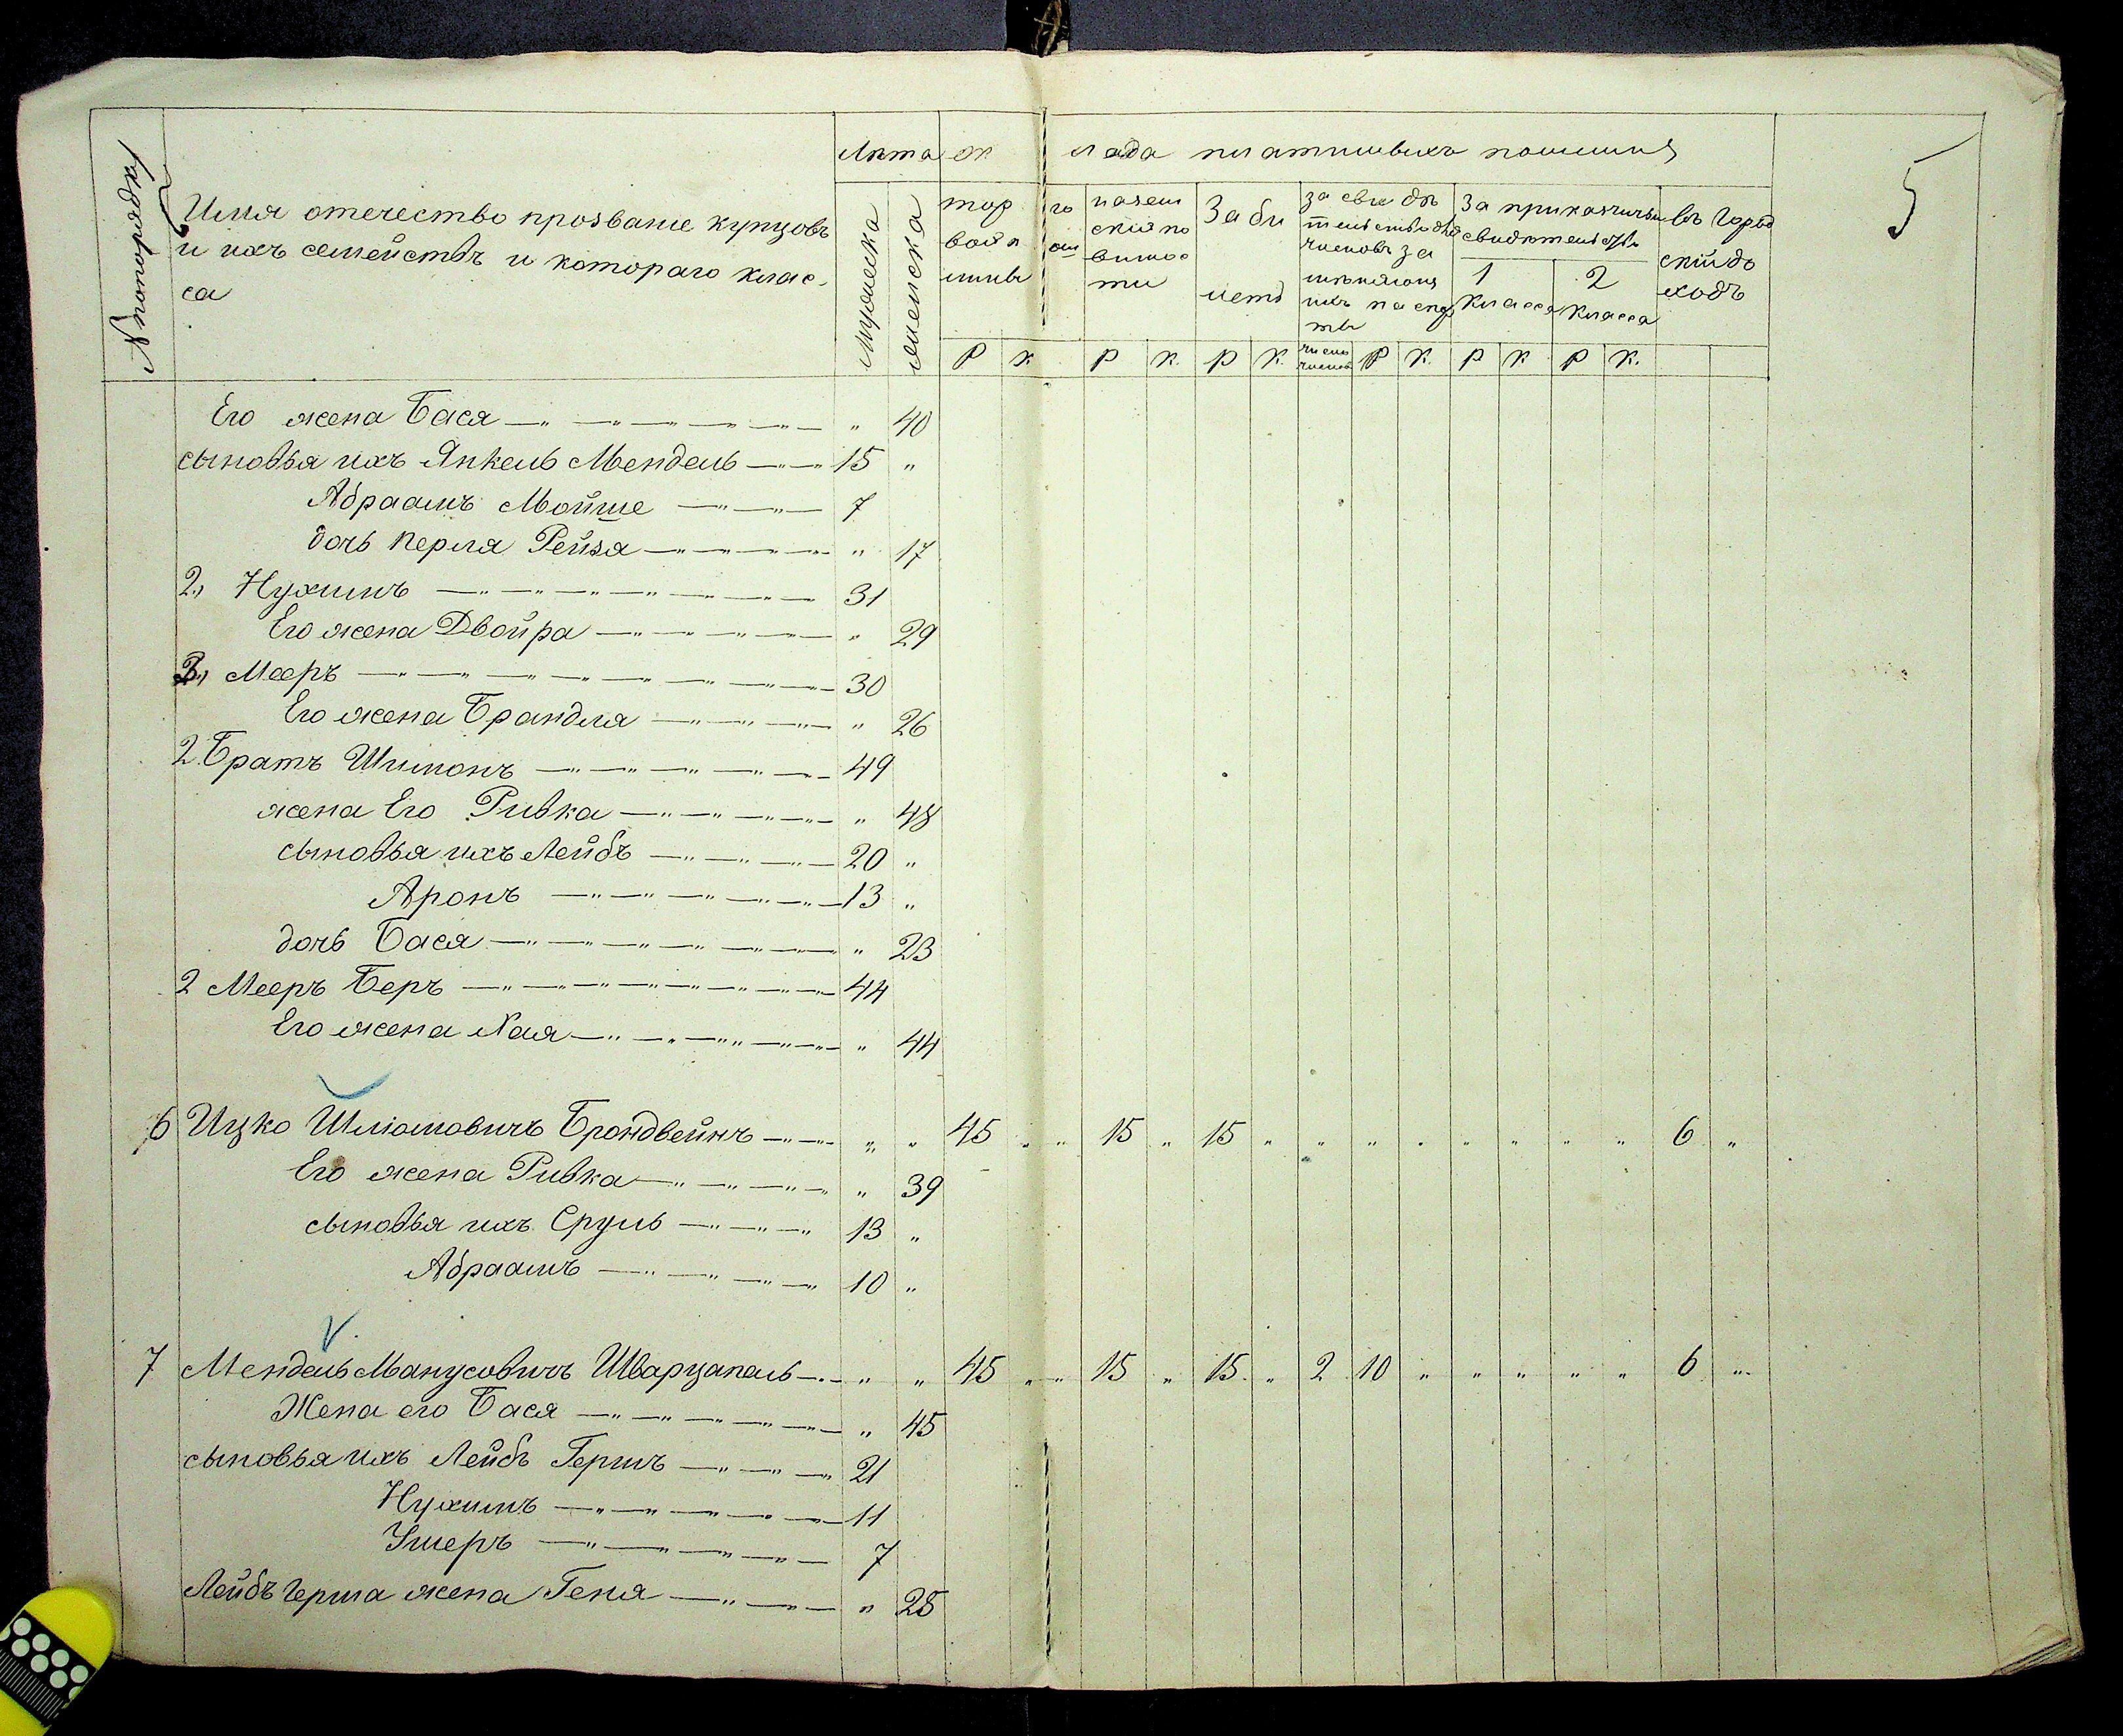 5
N по порядку
Имя отечество прозваніе купцовъ
и ихъ семействъ и котораго клас-
са
Лѣта
мужеска
женска
ок
лада платимыхъ пошлинъ
земскія по
винос
ти
За би
летъ
за свидѣ
членовъ за
За прикащичьи
свидѣтельства
1
класса
2
класса
въ Город
скій до
ходъ
Р к Р к. р к. число членовъ Р к. р к р к.
Его жена Бася — " 40
сыновья ихъ Янкель Мендель — 15 "
Абраамъ Мойше — 7
дочь Перля Рейза — " 17
2, Нухимъ — 31
Его жена Двойра — " 29
3, Мееръ — 30
Его жена Брандля — " 26
2. Братъ Шимонъ — 49
жена Его Ривка — " 48
сыновья ихъ Лейбъ — 20 "
Аронъ — 13 "
дочь Бася — " 23
2 Мееръ Беръ — 44
Его жена Хая — " 44
6 Ицко Шліомовичъ Брондвейнъ — " " 45 " " 15 " 15 " " " " " " " " 6 "
Его жена Ривка — " 39
сыновья ихъ Сруль — 13 "
Абраамъ — 10 "
7 Мендель Манусовичъ Шварцапель — " " 45 " " 15 " 15 " 2 10 " " " " " 6 "
Жена его Бася — " 45
сыновья ихъ Лейбъ Гершъ — 21
Нухимъ — 11
Ушеръ — 7
Лейбъ Герша жена Геня — " 25